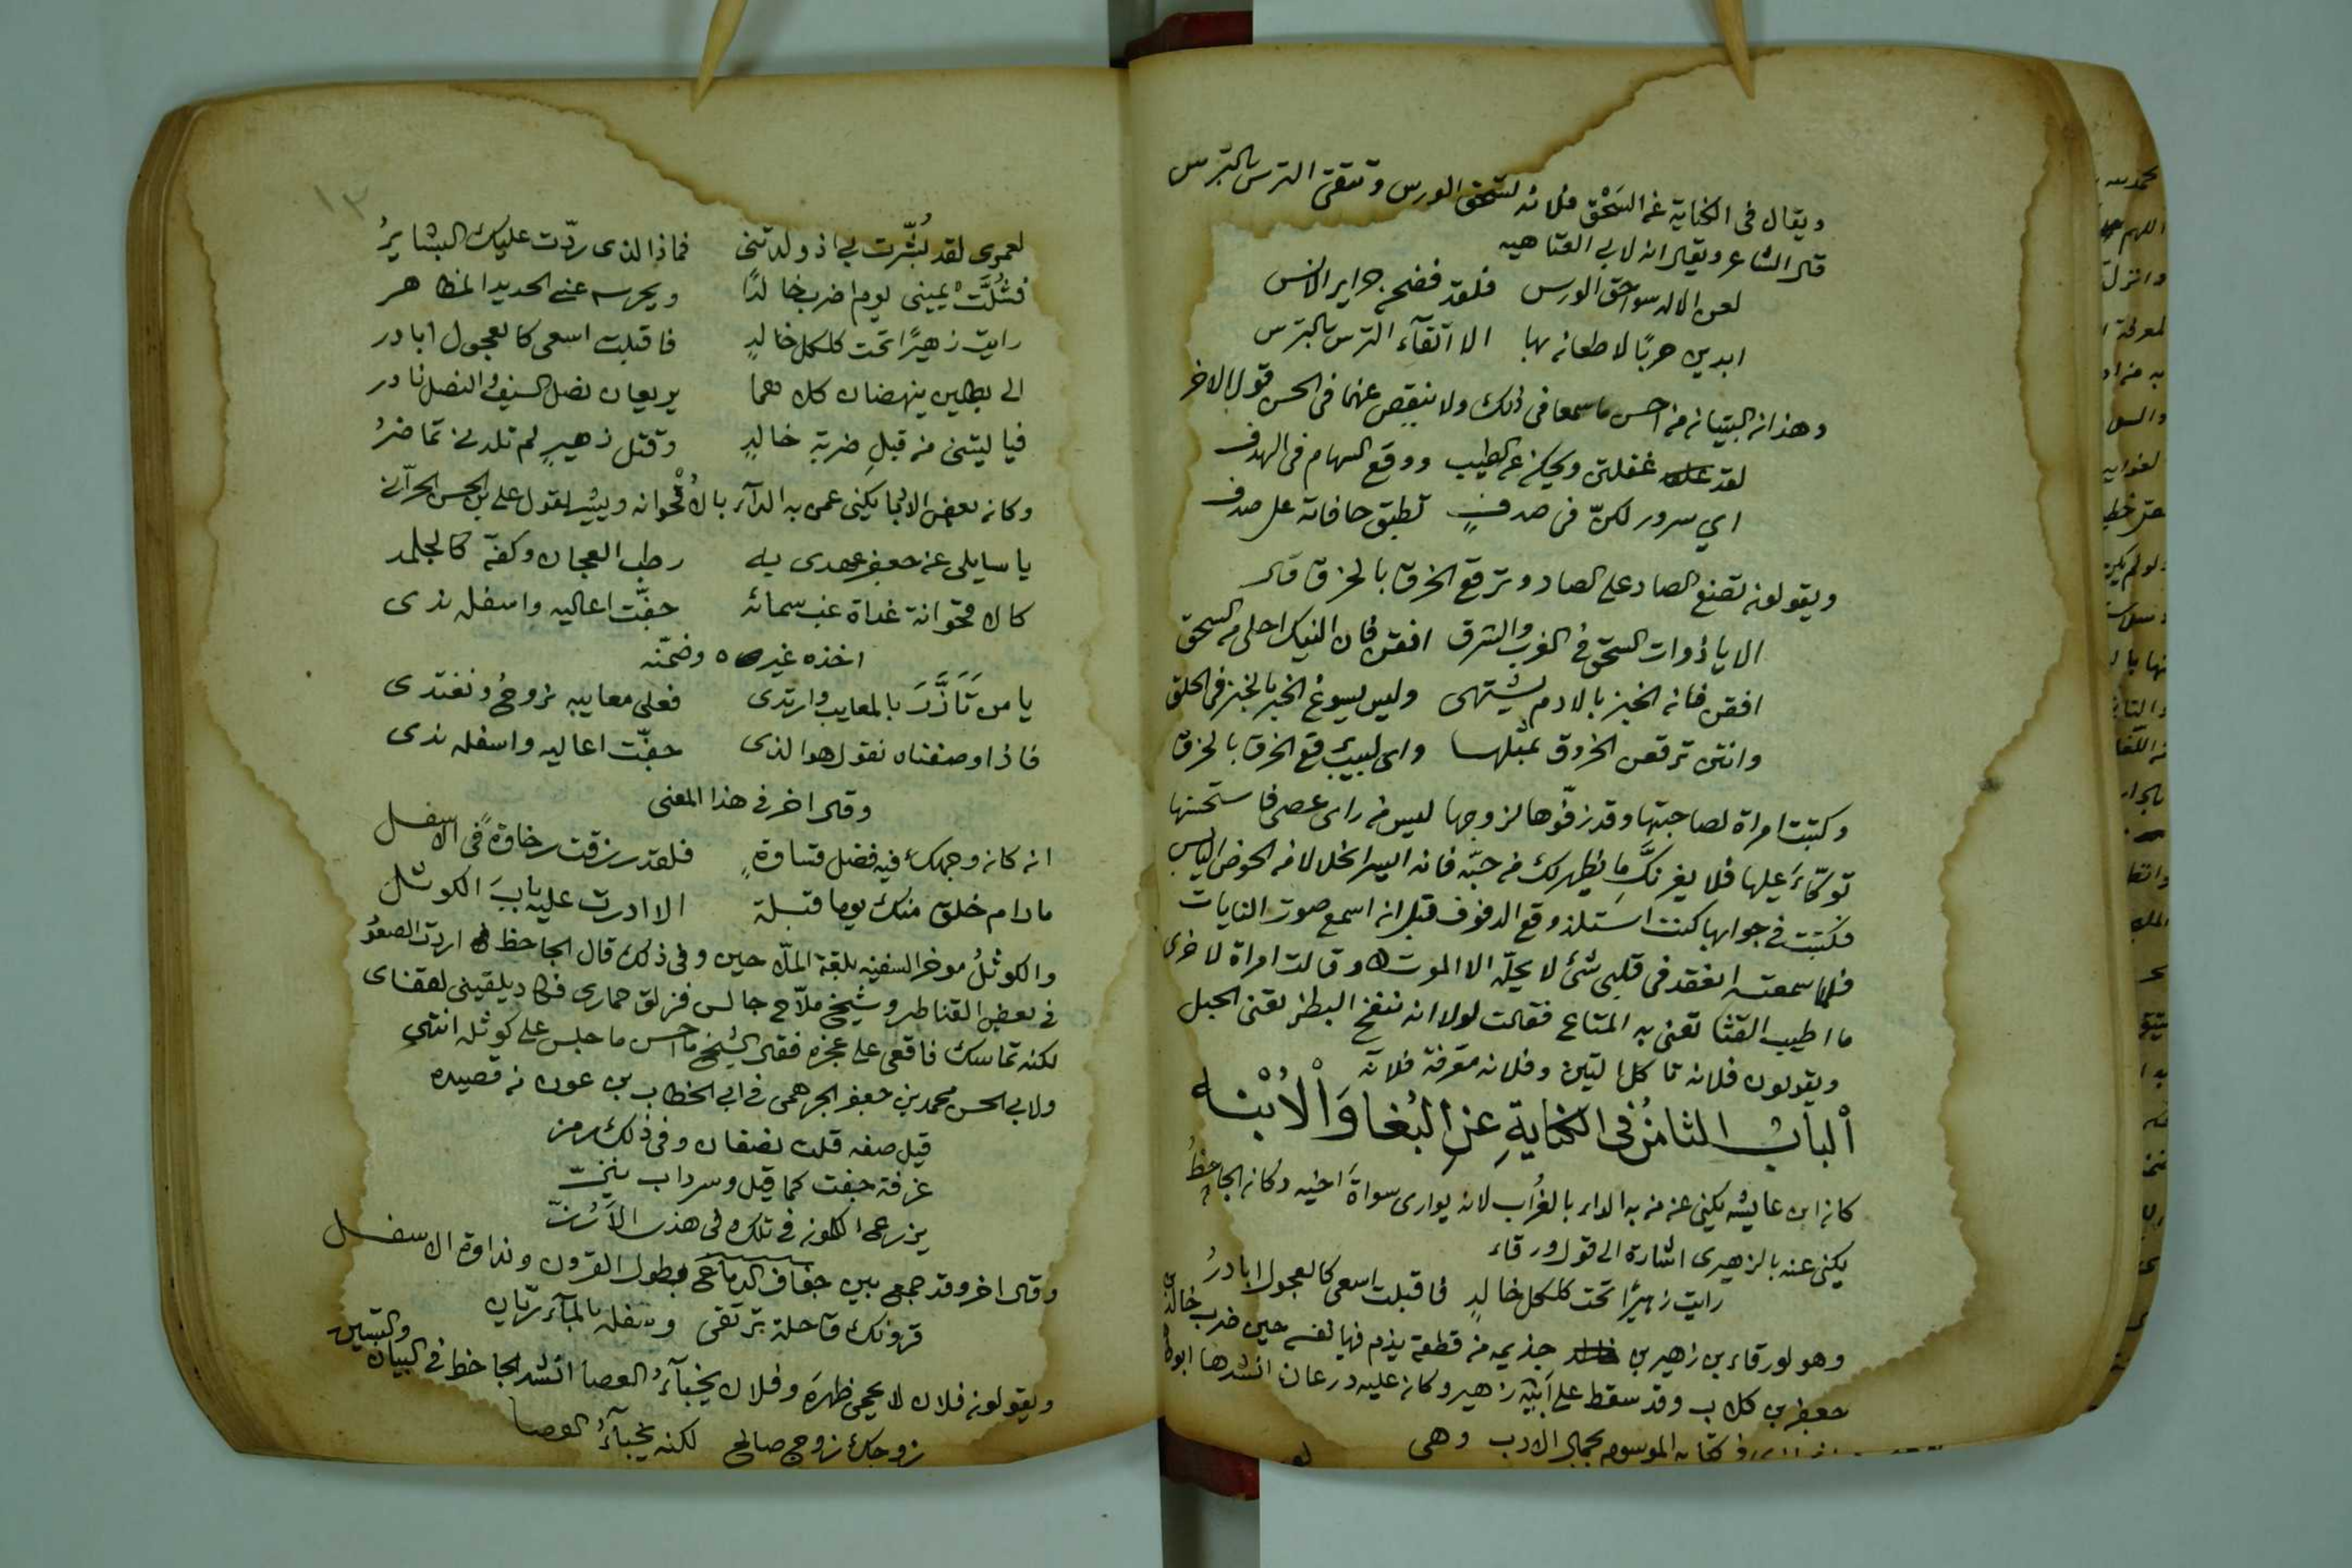 ويقال في الكناية عن السَحْق فلانه تسحق الورس وتتقى الترس بالترس
قال الشاعر ويقال انه لابي العتاهيه
لعن الاله سواحق الورس فلقد فضحن حراير الانس
ابدين حربًا لا طعان بها الا اتقآء الترس بالترس
وهذان البيتان من احسن ما سمعا في ذلك ولا ينقص عنهما في الحسن قول الاخر
لقد غفلتي ويحكن عن الطيب ووقع السهام في الهدف
اي سرور لكنّ في صدفٍ تطبق حافاته على صدف
ويقولون تضع الصاد على الصاد وترقع الخرق بالخرق قال
الا يا ذوات السحق في الغرب والشرق افقن فان النيك احلى من السحق
افقن فان الخبز بالادم يشتهى وليس يسوغ الخبز بالخبز في الحلق
وانتن ترقعن الخروق بمثلها واى لبيب يرقع الخرق بالخرق
وكتبت امراة لصاحبتها وقد زفّوها لزوجها ليس من راى عصى فاستحسنها
توكّاءَ عليها فلا يغرنكَّ ما يظهر لك من حبّه فانه اليسر الخل لا من الحوض الياس
فكتبت في جوابها كنت استلذ وقع الدفوف قبل ان اسمع صوت النايات
فلما سمعته انعقد في قلبي شئ لا يحلّه الا الموت وقالت امراة لاخرى
ما اطيب القثا تعني به المتاع فقالت لولا انه ينفخ البطن تعني الحبل
ويقولون فلانه تاكل التين وفلانه مغرفة فلانه
اْلبابُ الثامنُ في الكنايةِ عنِ البُغا وَاْلاُبْنه
كان ابن عايشه يكني عن من به الداء بالغُراب لانه يوارى سواةَ اخيه وكان الجاحظُ
يكني عنه بالزهيرى اشارة الى قول ورقاء
رايت زهيرًا تحت كلكل خالدٍ فاقبلت اسعى كالعجول ابادرُ
وهو لورقاء بن زهير بن جذيمه من قطعة يذم فيها نفسه حين ضرب خالد بن
جعفر بن كلاب وقد سقط على ابيه زهير وكان عليه درعان انشدها ابو
في كتابه الموسوم بجمال الادب وهي
١٣
لعمرى لقد بُشّرت بي اذ ولدتنى فماذا الذى ردّت عليك البشايرُ
فشُلَّتْ يميني يوم اضرب خالدًا ويحرسه عنى الحديد المظاهر
رايت زهيرًا تحت كلكل خالدٍ فاقبلت اسعى كالعجول ابادر
الى بطلين ينهضان كلاهما يريعان نصل السيف والنصل نادر
فيا ليتنى من قبل ضربة خالدٍ وقتل زهيرٍ لم تلدنى تماضرُ
وكان بعض الادبا يكنى عمن به الدآء بالاُقْحوانه ويشير لقول على بن الحسن الحرّانى
يا سايلى عن جعفر عهدى به رطب العجان وكفّه كالجلمد
كالاقحوانة غداة غب سمائه جفّت اعاليه واسفله ندى
اخذه غيره وضمّنه
يا من تَاَزَّرَ بالمعايب وارتدى فعلى معايبه نروحُ ونغتدى
فاذا وصفناه نقول هو الذى جفّت اعاليه واسفله ندى
وقال اخر في هذا المعنى
ان كان وجهك فيه فضل قساوةٍ فلقد رزقت رخاوةً في الاسفل
ما رام خلق منك يوما قبلة الا ادرت عليه بابَ الكوثل
والكوثلُ موخر السفينه بلغة الملّاحين وفي ذلك قال الجاحظ اردت الصعودُ
في بعض القناطر وشيخ ملّاح جالس فزلق حمارى فكاد يلقينى لقفاى
لكنه تماسك فاقعى على عجزه فقال الشيخ ما احسن ما جلس على كوثله انتهى
ولابي الحسن محمد بن جعفر الجرهمى في ابي الخطاب بن عون من قصيده
قيل صفه قلت نصفان وفي ذلك رمز
غرفة جفت كما قيل وسرداب ينزّ
يزرع الكمون في تلك وفي هذه الاَرُزّ
وقال اخر وقد جمع بين جفاف الدماغ بطول القرون ونداوة الاسفل
قرونك قاحلة ترتقى وسفله بالمآء ريّان
ويقولون فلان لا يحمى ظهرَه وفلان يخبآءُ العصا انشد الجاحظ في البيان والتبيين
زوجك زوج صالح لكنه يخبآءُ العصا